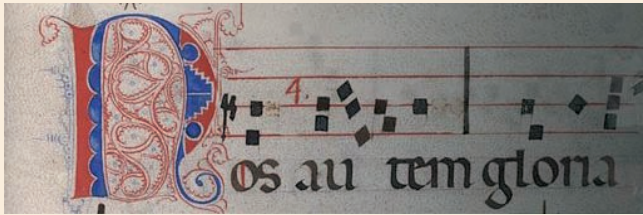 4.
Nos au tem gloria